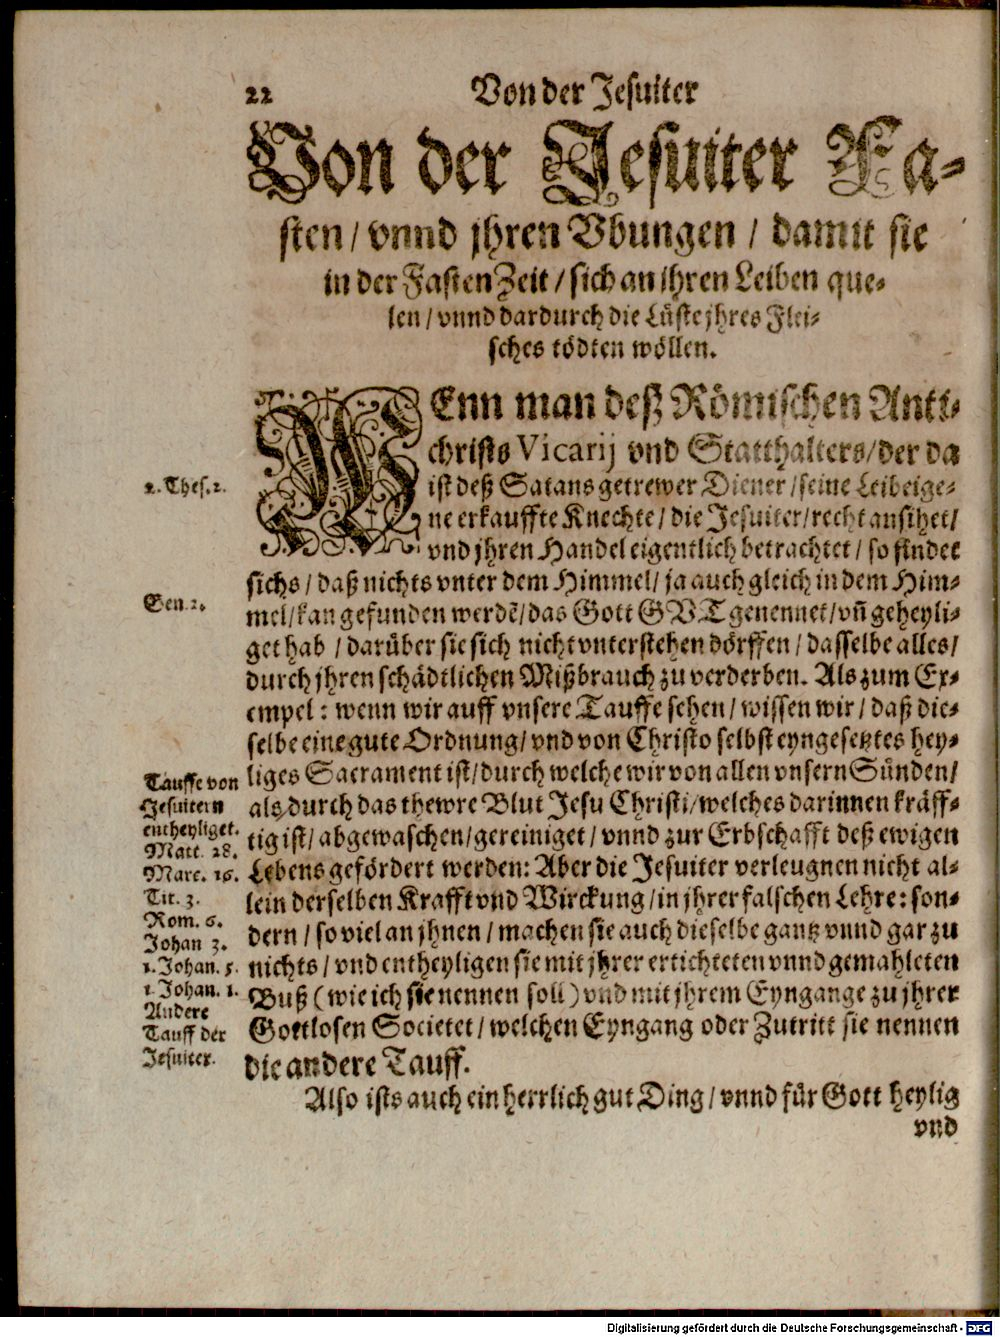 22
Von der Jesuiter
Von der Jesuiter Fa-
sten / vnnd jhren Vbungen / damit sie
in der Fasten Zeit / sich an jhren Leiben que-
len / vnnd dardurch die Lüste jhres Flei-
sches tödten wöllen.
WEnn man deß Römischen Anti-
christs Vicarij vnd Statthalters / der da
ist deß Satans getrewer Diener / seine Leibeige-
ne erkauffte Knechte / die Jesuiter / recht ansihet /
vnd jhren Handel eigentlich betrachtet / so findet
sichs / daß nichts vnter dem Himmel / ja auch gleich in dem Him-
mel / kan gefunden werdẽ / das Gott GVT genennet / vñ geheyli-
get hab / darüber sie sich nicht vnterstehen dörffen / dasselbe alles /
durch jhren schädtlichen Mißbrauch zu verderben. Als zum Ex-
empel : wenn wir auff vnsere Tauffe sehen / wissen wir / daß die-
selbe eine gute Ordnung / vnd von Christo selbst eyngesetztes hey-
liges Sacrament ist / durch welche wir von allen vnsern Sünden /
als durch das thewre Blut Jesu Christi / welches darinnen kräff-
tig ist / abgewaschen / gereiniget / vnnd zur Erbschafft deß ewigen
Lebens gefördert werden: Aber die Jesuiter verleugnen nicht al-
lein derselben Krafft vnd Wirckung / in jhrer falschen Lehre: son-
dern / so viel an jhnen / machen sie auch dieselbe gantz vnnd gar zu
nichts / vnd entheyligen sie mit jhrer ertichteten vnnd gemahleten
Buß (wie ich sie nennen soll) vnd mit jhrem Eyngange zu jhrer
Gottlosen Societet / welchen Eyngang oder Zutritt sie nennen
die andere Tauff.
Also ists auch ein herrlich gut Ding / vnnd für Gott heylig
vnd
2. Thes. 2.
Gen. 2.
Tauffe von
Jesuitern
entheyliget.
Matt. 28.
Marc. 16.
Tit. 3.
Rom. 6.
Johan 3.
1. Johan. 5.
1 Johan. 1.
Andere
Tauff der
Jesuiter.
Digitalisierung gefördert durch die Deutsche Forschungsgemeinschaft - DFG